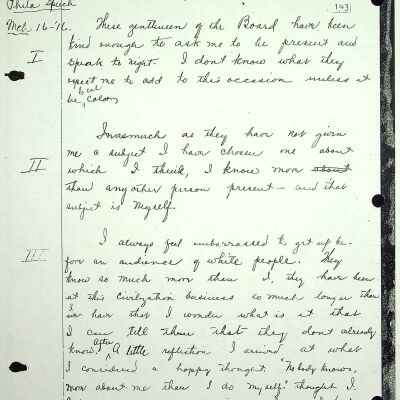 Phila Speech
143
Mch. 16-'16.
These gentlemen of the Board have been
I
kind enough to ask me to be present and
speak to night. I don't know what they
expect me to add to this occasion unless it
be local color
Inasmuch as they have not given
me a subject I have chosen one about
II
which I think, I know more about
than any other person present— and that
subject is Myself.
III
I always feel embarrassed to get up be-
fore an audience of white people. They
know so much more than I, they have been
at this civilization business so much longer than
have that I wonder what is it that
I can tell them that they dont already
know. After A little reflection I arrived at what
I considered a happy thought. "Nobody knows,
more about me than I do myself." thought I